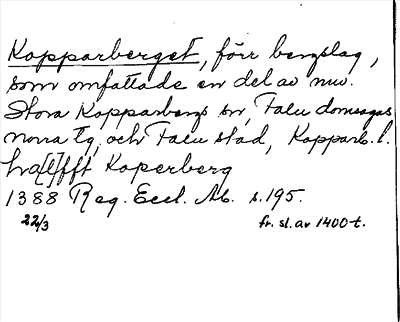 Kopparberget, förr bergslag,
som omfattade en del av nuv.
Stora Kopparbergs sn, Falu domsagas
norra tg, och Falu stad, Kopparb. l.
ha[l]fft Koperberg
1388 Reg. Eccl. Ab. s. 195.
22/3 fr. sl. av 1400-t.